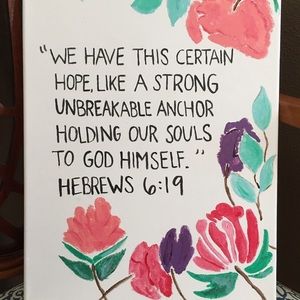 "WE HAVE THIS CERTAIN
HOPE, LIKE A STRONG
UNBREAKABLE ANCHOR
HOLDING OUR SOULS
TO GOD HIMSELF."
HEBREWS 6:19